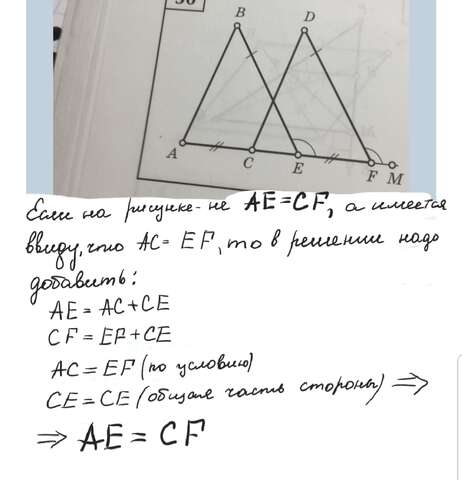 30
B
D
A
C
E
F
M
Если на рисунке - не AE=CF, а имеется
ввиду, что AC= EF, то в решении надо
добавить:
AE = AC+CE
CF = EF+CE
AC = EF (по условию)
CE = CE (общая часть стороны) ⟹
⟹ AE = CF